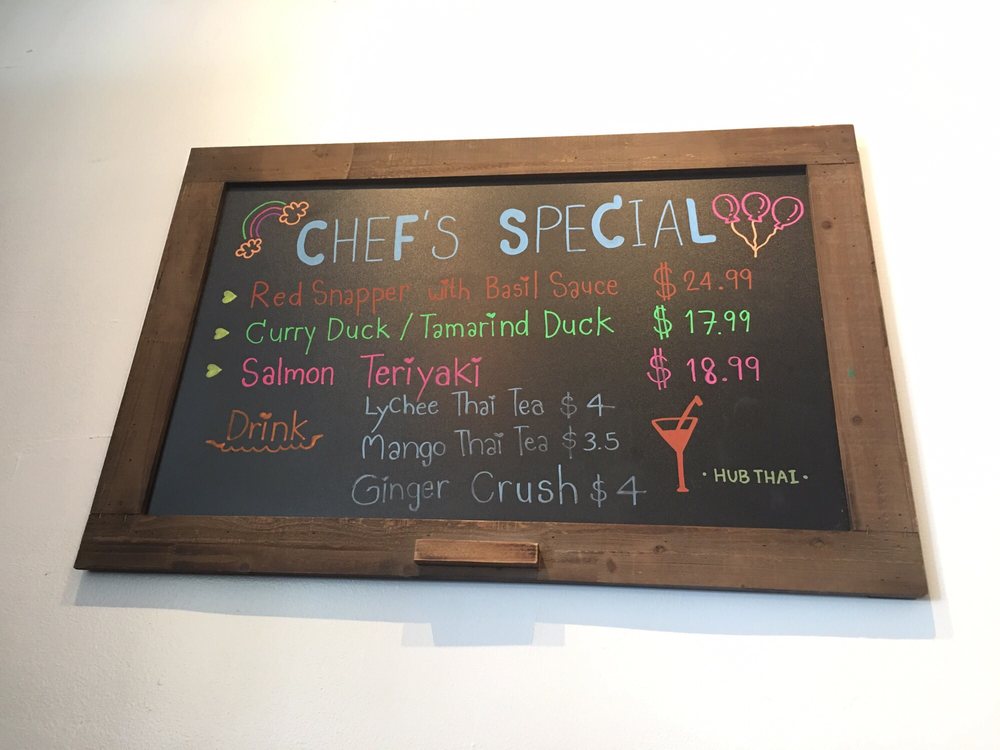 CHEF'S SPECIAL
Red Snapper with Basil Sauce $ 24.99
Curry Duck / Tamarind Duck $ 17.99
Salmon Teriyaki $ 18.99
Drink
Lychee Thai Tea $ 4
Mango Thai Tea $ 3.5
Ginger Crush $ 4
· HUB THAI ·